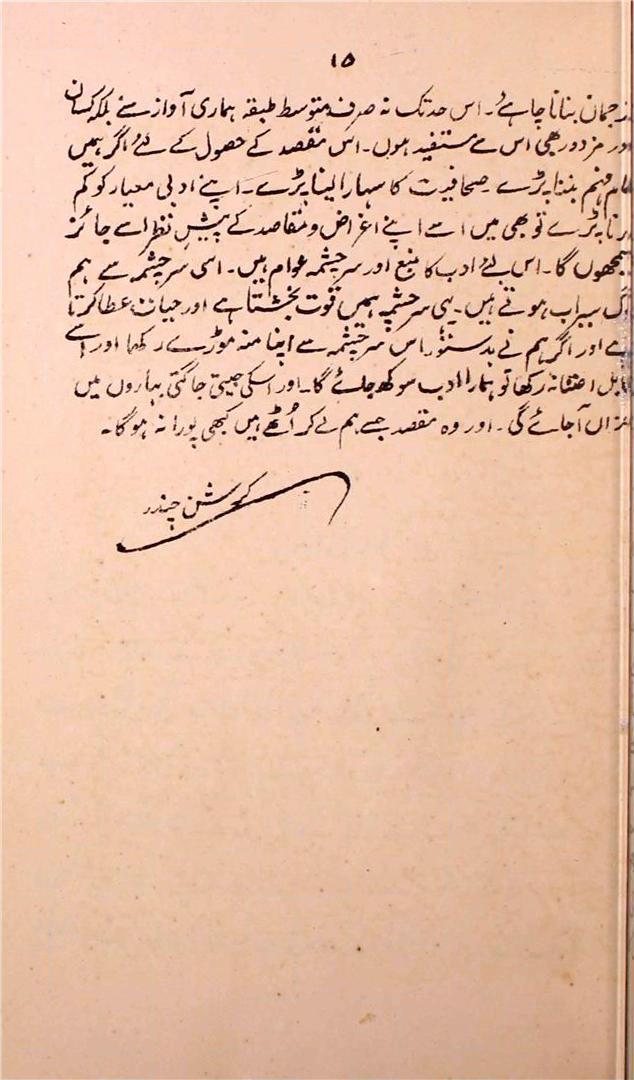 ۱۵
ترجمان بنانا چاہئے۔ اس حد تک نہ صرف متوسط طبقہ ہماری آواز سنے بلکہ کسان
اور مزدور بھی اس سے مستفید ہوں۔ اس مقصد کے حصول کے لئے اگر ہمیں
عام فہم بننا پڑے۔ صحافیت کا سہارا لینا پڑے۔ اپنے ادبی معیار کو کم
کرنا پڑے تو بھی میں اسے اپنے اغراض و مقاصد کے پیشِ نظر اسے جائز
سمجھوں گا۔ اس لئے ادب کا منبع اور سرچشمہ عوام ہیں۔ اسی سرچشمہ سے ہم
لوگ سیراب ہوتے ہیں۔ یہی سرچشمہ ہمیں قوت بخشتا ہے اور حیات عطا کرتا
ہے اور اگر ہم نے بدستور اس سرچشمہ سے اپنا منہ موڑے رکھا اور اسے
قابل اعتنا نہ رکھا تو ہمارا ادب سوکھ جائے گا۔ اور اسکی جیتی جاگتی بہاروں میں
خزاں آ جائے گی۔ اور وہ مقصد جسے ہم لے کر اُٹھے ہیں کبھی پورا نہ ہو گا۔
کرشن چندر